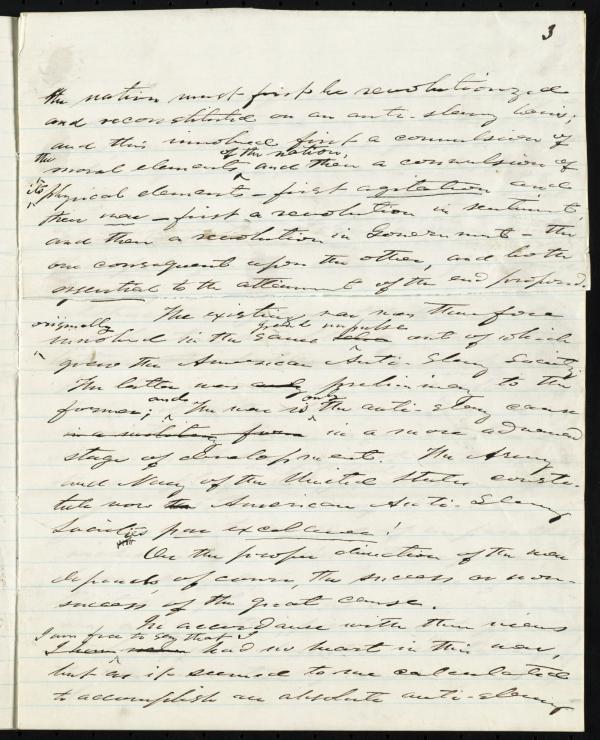 3
the nation must first be revolutionized
and reconstituted on an anti-slavery basis;
and this involved first a convulsion of
the moral elements of the nation, and then a convulsion of
its physical elements – first agitation and
then war – first a revolution in sentiment,
and then a revolution in Government – the
one consequent upon the other, and both
essential to the attainment of the end proposed.
The existing war was therefore
originally involved in the same great impulse out of which
grew the American Anti-Slavery Society.
The latter was only preliminary to the
former; and the war is only the anti-slavery cause
in a military form in a more advanced
stage of development. The Army
and Navy of the United States consti-
tute now the American Anti-Slavery
Societies par excelance!
On the proper direction of the war
depends, of course, the success or non-
success of the great cause.
In accordance with these views
I am free to say that I
had no heart in this war,
but as it seemed to me calculated
to accomplish an absolute anti-slavery